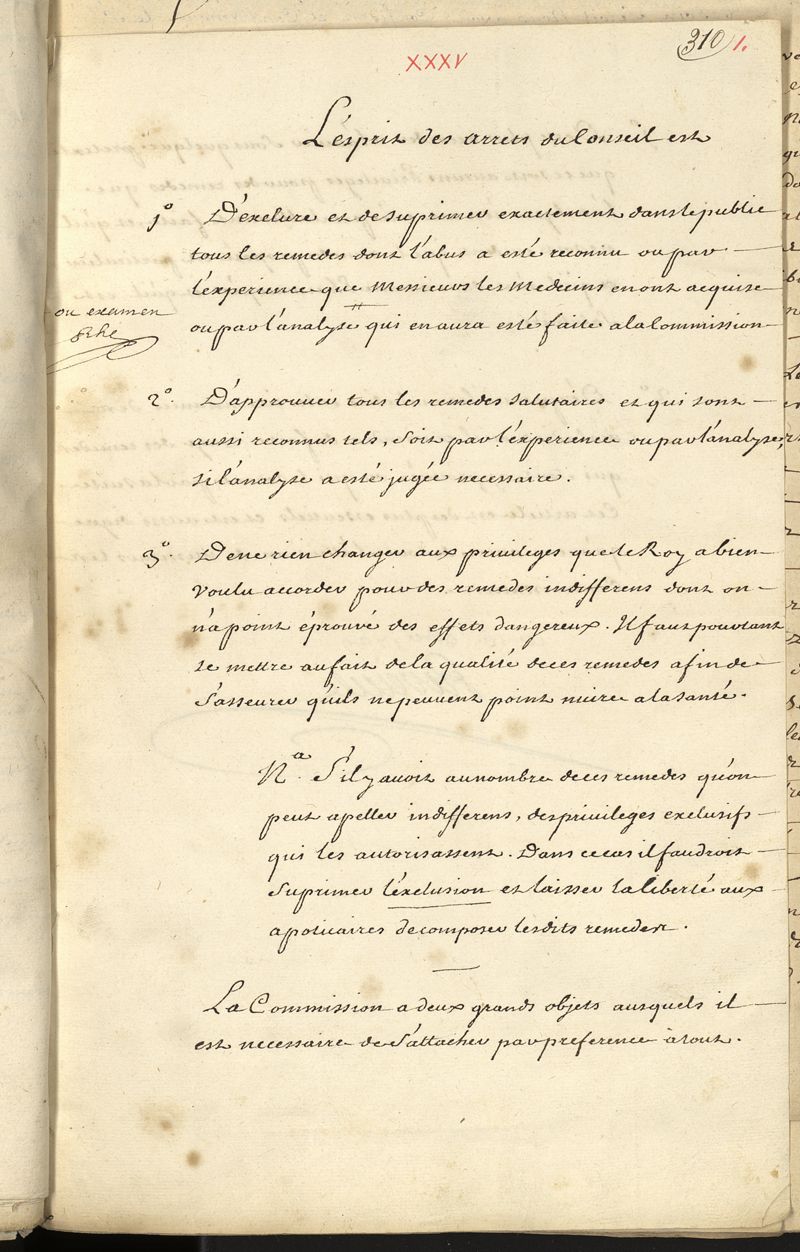 310 1.
XXXV
L'esprit des arrets du Conseil est
1° D'exclure et de suprimer exactement dans le public
tous les remedes dont l'abus a esté reconnu ou par
l'experience que Messieurs les Medecins en ont acquise
ou examen
ou par l'analyse qui en aura esté faite a la Commission
2°. D'approuver tous les remedes salutaires et qui sont
aussi reconnus tels, soit par l'experience ou par l'analyse,
si l'analyse a esté jugée necessaire.
3°. De ne rien changer aux privileges que le Roy a bien
voulu accorder pour des remedes indifferens dont on
n'a point éprouvé des effets dangereux. Il faut pourtant
se mettre au fait de la qualité de ces remedes afin de
s'asseurer qu'ils ne peuvent point nuire a la santé.
Na. S'il y avoit au nombre de ces remedes qu'on
peut apeller indifferens, des privileges exclusifs
qui les autorisassent. Dans ce cas il faudroit
suprimer l'éxclusion et laisser la liberté aux
apoticaires de composer lesdits remedes.
La Commission a deux grands objets ausquels il
est necessaire de s'attacher par preference à tout.